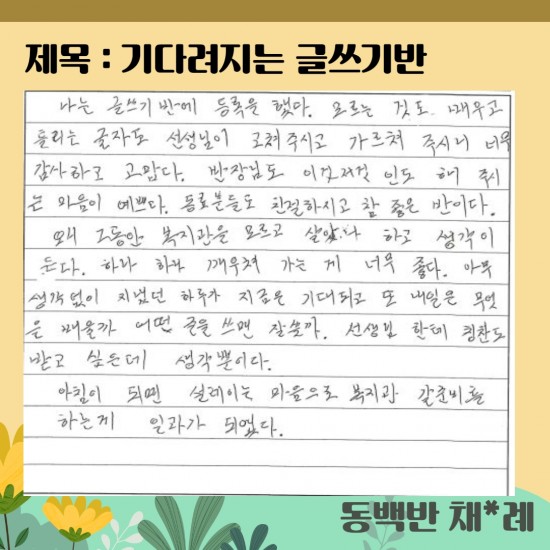 제목 : 기다려지는 글쓰기반
나는 글쓰기 반에 등록을 했다. 모르는 것도 배우고
틀리는 글자도 선생님이 고쳐 주시고 가르쳐 주시니 너무
감사하고 고맙다. 반장님도 이것저것 인도 해 주시
는 마음이 예쁘다. 동료분들도 친절하시고 참 좋은 반이다.
왜 그동안 복지관을 모르고 살았나 하고 생각이
든다. 하나 하나 깨우쳐 가는 게 너무 좋다. 아무
생각없이 지냈던 하루가 지금은 기대되고 또 내일은 무엇
을 배울까 어떤 글을 쓰면 잘쓸까. 선생님 한테 칭찬도
받고 싶은데 생각뿐이다.
아침이 되면 설레이는 마음으로 복지관 갈준비를
하는게 일과가 되었다.
동백반 채*례